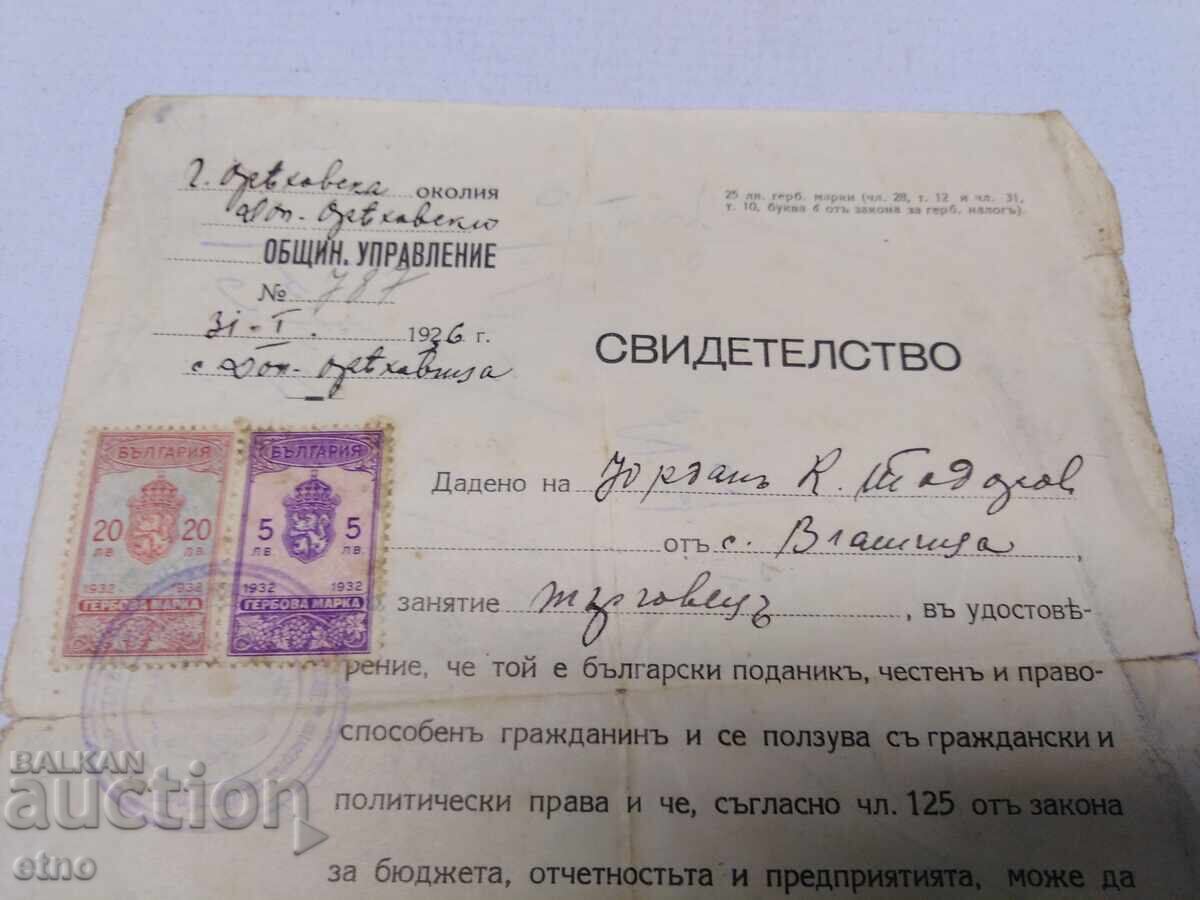 Г. Орѣховска околия
Дол. Орѣховско
ОБЩИН. УПРАВЛЕНИЕ
№ 787
31-I. 1936 г.
с. Дол. Орѣховица
25 лв. герб. марки (чл. 28, т. 12 и чл. 31,
т. 10, буква б отъ закона за герб. налогъ).
СВИДЕТЕЛСТВО
БЪЛГАРИЯ
20 20
ЛВ. ЛВ.
1932 1932
ГЕРБОВА МАРКА
БЪЛГАРИЯ
5 5
ЛВ. ЛВ.
1932 1932
ГЕРБОВА МАРКА
Дадено на Йорданъ К. Тодоров
отъ с.
занятие търговецъ, въ удостовѣ-
рение, че той е български поданикъ, честенъ и право-
способенъ гражданинъ и се ползува съ граждански и
политически права и че, съгласно чл. 125 отъ закона
за бюджета, отчетностьта и предприятията, може да
BALKAN
auction
etno